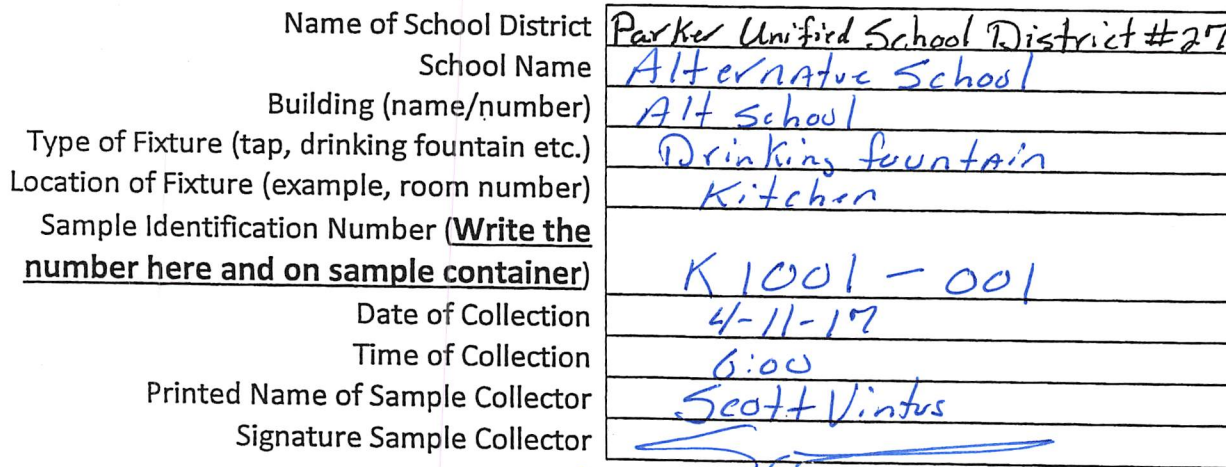 Name of School District Parker Unified School District #27
School Name Alternatve School
Building (name/number) Alt School
Type of Fixture (tap, drinking fountain etc.) Drinking fountain
Location of Fixture (example, room number) Kitchen
Sample Identification Number (Write the
number here and on sample container) K1001-001
Date of Collection 4-11-17
Time of Collection 6:00
Printed Name of Sample Collector Scott Vintus
Signature Sample Collector